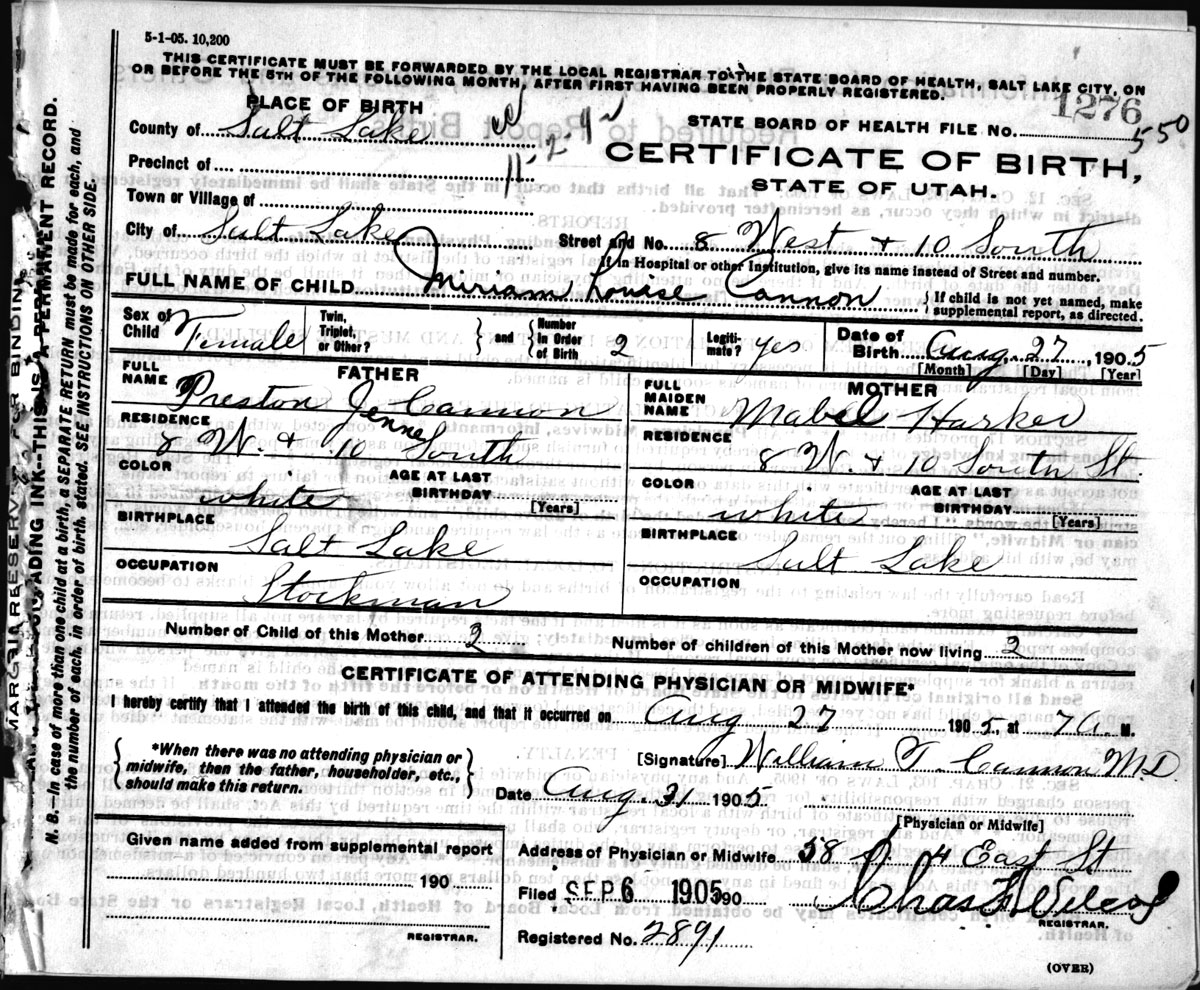 5-1-05. 10,200
THIS CERTIFICATE MUST BE FORWARDED BY THE LOCAL REGISTRAR TO THE STATE BOARD OF HEALTH, SALT LAKE CITY, ON
OR BEFORE THE 5TH OF THE FOLLOWING MONTH, AFTER FIRST HAVING BEEN PROPERLY REGISTERED.
PLACE OF BIRTH
1276
County of Salt Lake
STATE BOARD OF HEALTH FILE NO. 550
Precinct of
11-2-9
CERTIFICATE OF BIRTH,
STATE OF UTAH.
Town or Village of
City of Salt Lake Street and No. 8 West & 10 South
If in Hospital or other Institution, give its name instead of Street and number.
FULL NAME OF CHILD Miriam Louise Cannon { If child is not yet named, make supplemental report, as directed.
Sex of Child Female Twin, Triplet, or Other? } and { Number In Order of Birth 2 Legiti-mate? yes Date of Birth Aug. 27, 1905
[Month] [Day] [Year]
FATHER
FULL NAME Preston Jenne Cannon
RESIDENCE 8 W. & 10 South
COLOR white AGE AT LAST BIRTHDAY [Years]
BIRTHPLACE Salt Lake
OCCUPATION Stockman
MOTHER
FULL MAIDEN NAME Mabel Harker
RESIDENCE 8 W. & 10 South St.
COLOR white AGE AT LAST BIRTHDAY [Years]
BIRTHPLACE Salt Lake
OCCUPATION
Number of Child of this Mother 2 Number of children of this Mother now living 2
CERTIFICATE OF ATTENDING PHYSICIAN OR MIDWIFE*
I hereby certify that I attended the birth of this child, and that it occurred on Aug 27 1905, at 7 a. M.
{ *When there was no attending physician or midwife, then the father, householder, etc., should make this return. }
[Signature] William T Cannon M.D.
Date Aug. 31 1905
[Physician or Midwife]
Given name added from supplemental report
190
REGISTRAR.
Address of Physician or Midwife 58 4 East St
Filed SEP 6 1905 190 Chas F. Wilcox
REGISTRAR.
Registered No. 2891
(OVER)
MARGIN RESERVED FOR BINDING
FADING INK--THIS IS A PERMANENT RECORD.
N. B.--In case of more than one child at a birth, a SEPARATE RETURN must be made for each, and
the number of each, in order of birth, stated. SEE INSTRUCTIONS ON OTHER SIDE.